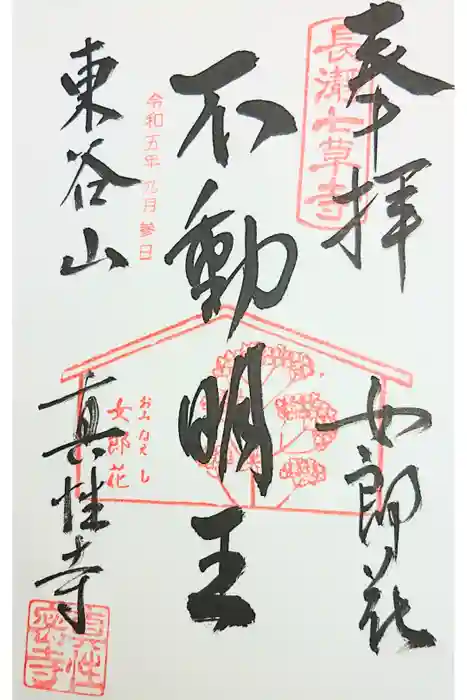 奉拝
長瀞七草寺
女郎花
不動明王
令和五年九月参日
おみなえし
女郎花
東谷山
真性寺